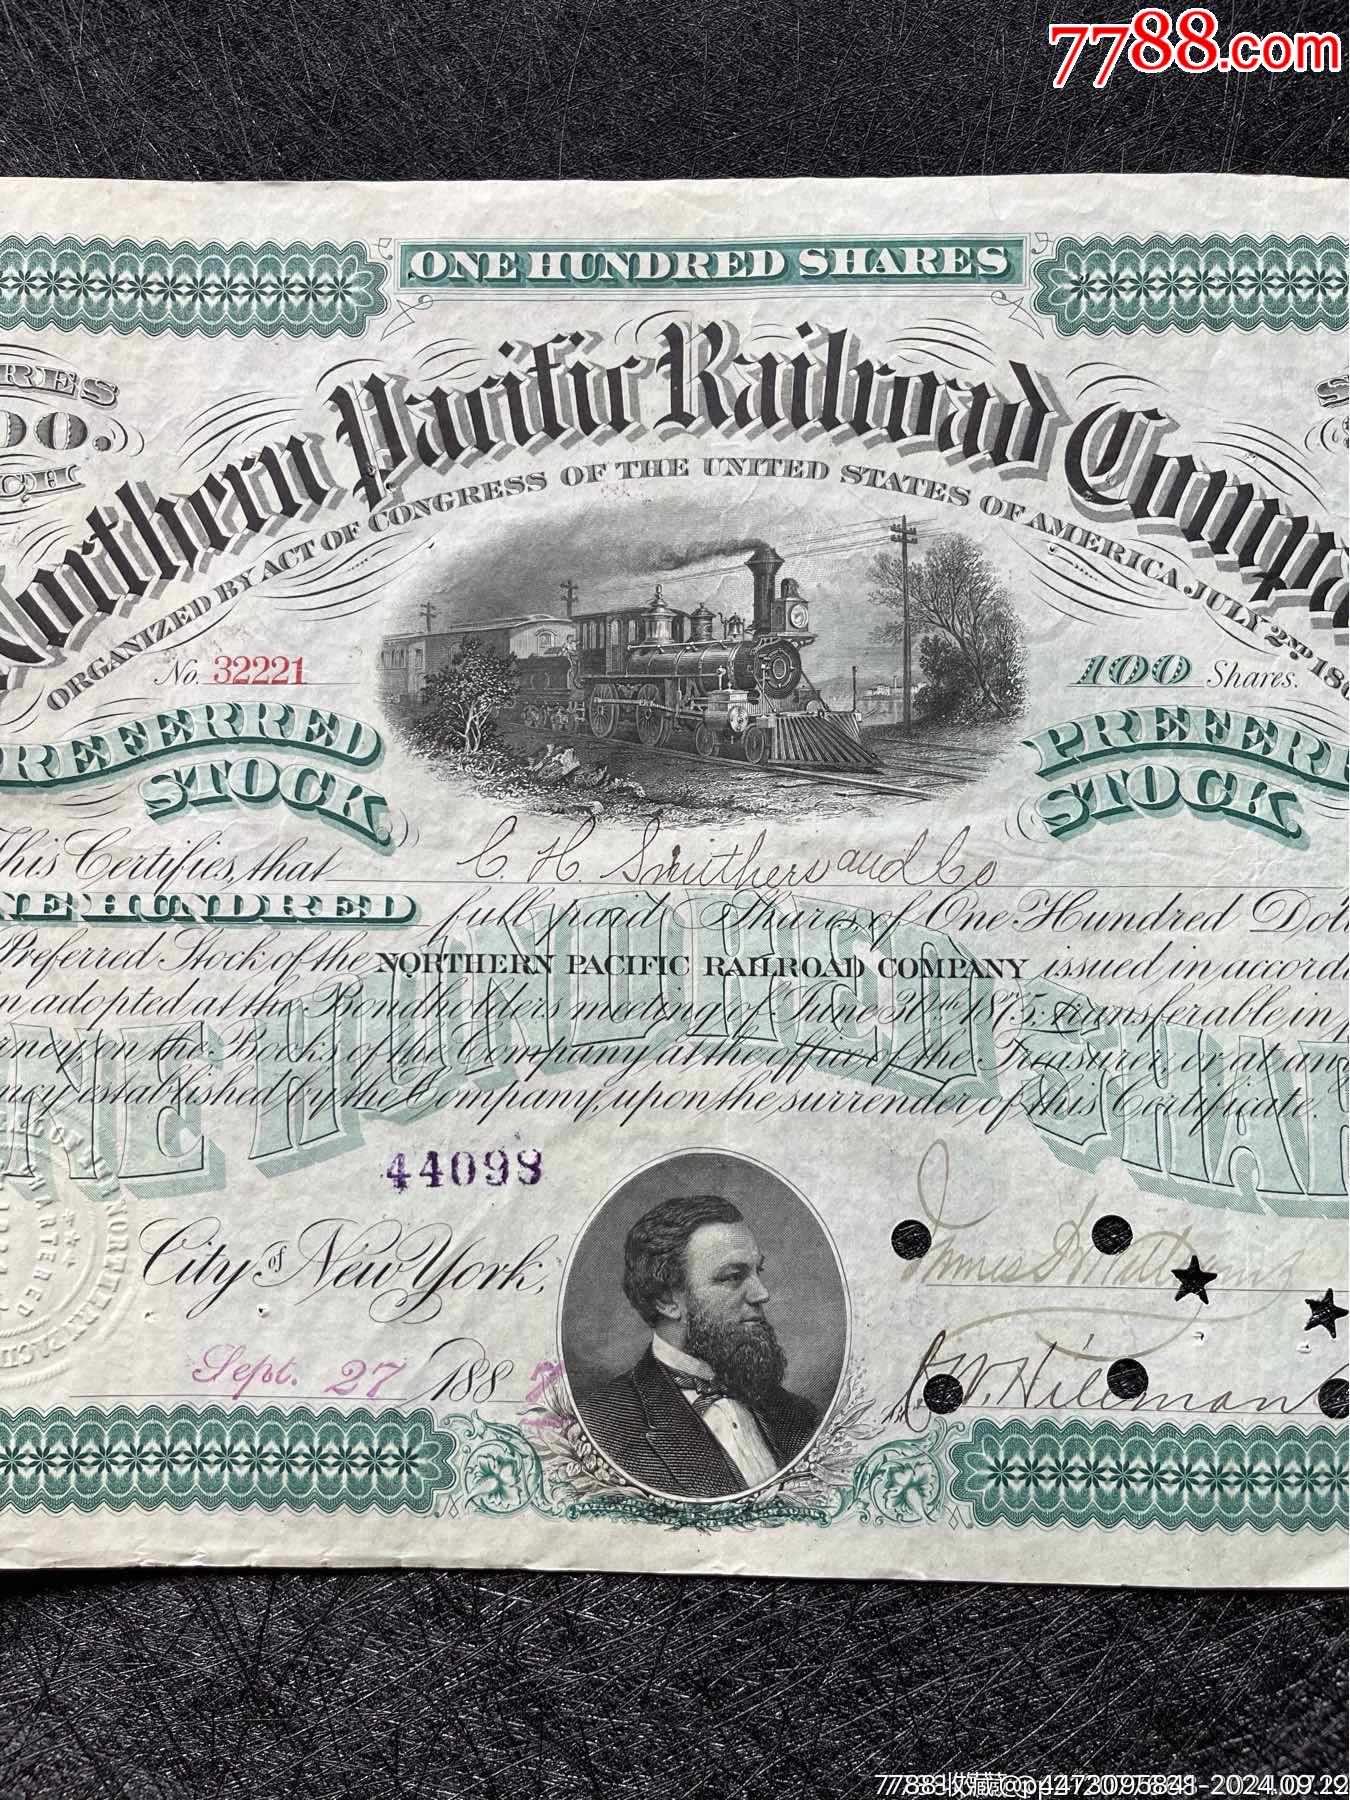 7788.com
ONE HUNDRED SHARES
Northern Pacific Railroad Compa
ORGANIZED BY ACT OF CONGRESS OF THE UNITED STATES OF AMERICA JULY 2ND 18
RES
00.
CH
No. 32221
100 Shares.
REFERRED STOCK
PREFERR STOCK
This Certifies, that C. H. Smithers and Co
NE HUNDRED full paid Shares, of One Hundred Dol
Preferred Stock, of the NORTHERN PACIFIC RAILROAD COMPANY issued in accord
n adopted at the Bondholders meeting of June 30th 1875, transferable in p
rney, on the Books of the Company at the office of the Treasurer, or at an
ncy established by the Company, upon the surrender of this Certificate.
NE HUNDRED SHAR
44098
City of New York,
Sept. 27 1882
7788收藏